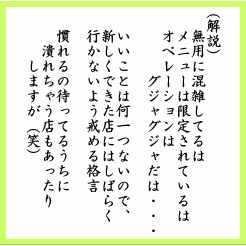 （解説）
無用に混雑してるは
メニューは限定されているは
オペレーションは
グジャグジャだは・・・
いいことは何一つないので、
新しくできた店にはしばらく
行かないよう戒める格言
慣れるの待ってるうちに
潰れちゃう店もあったり
しますが（笑）